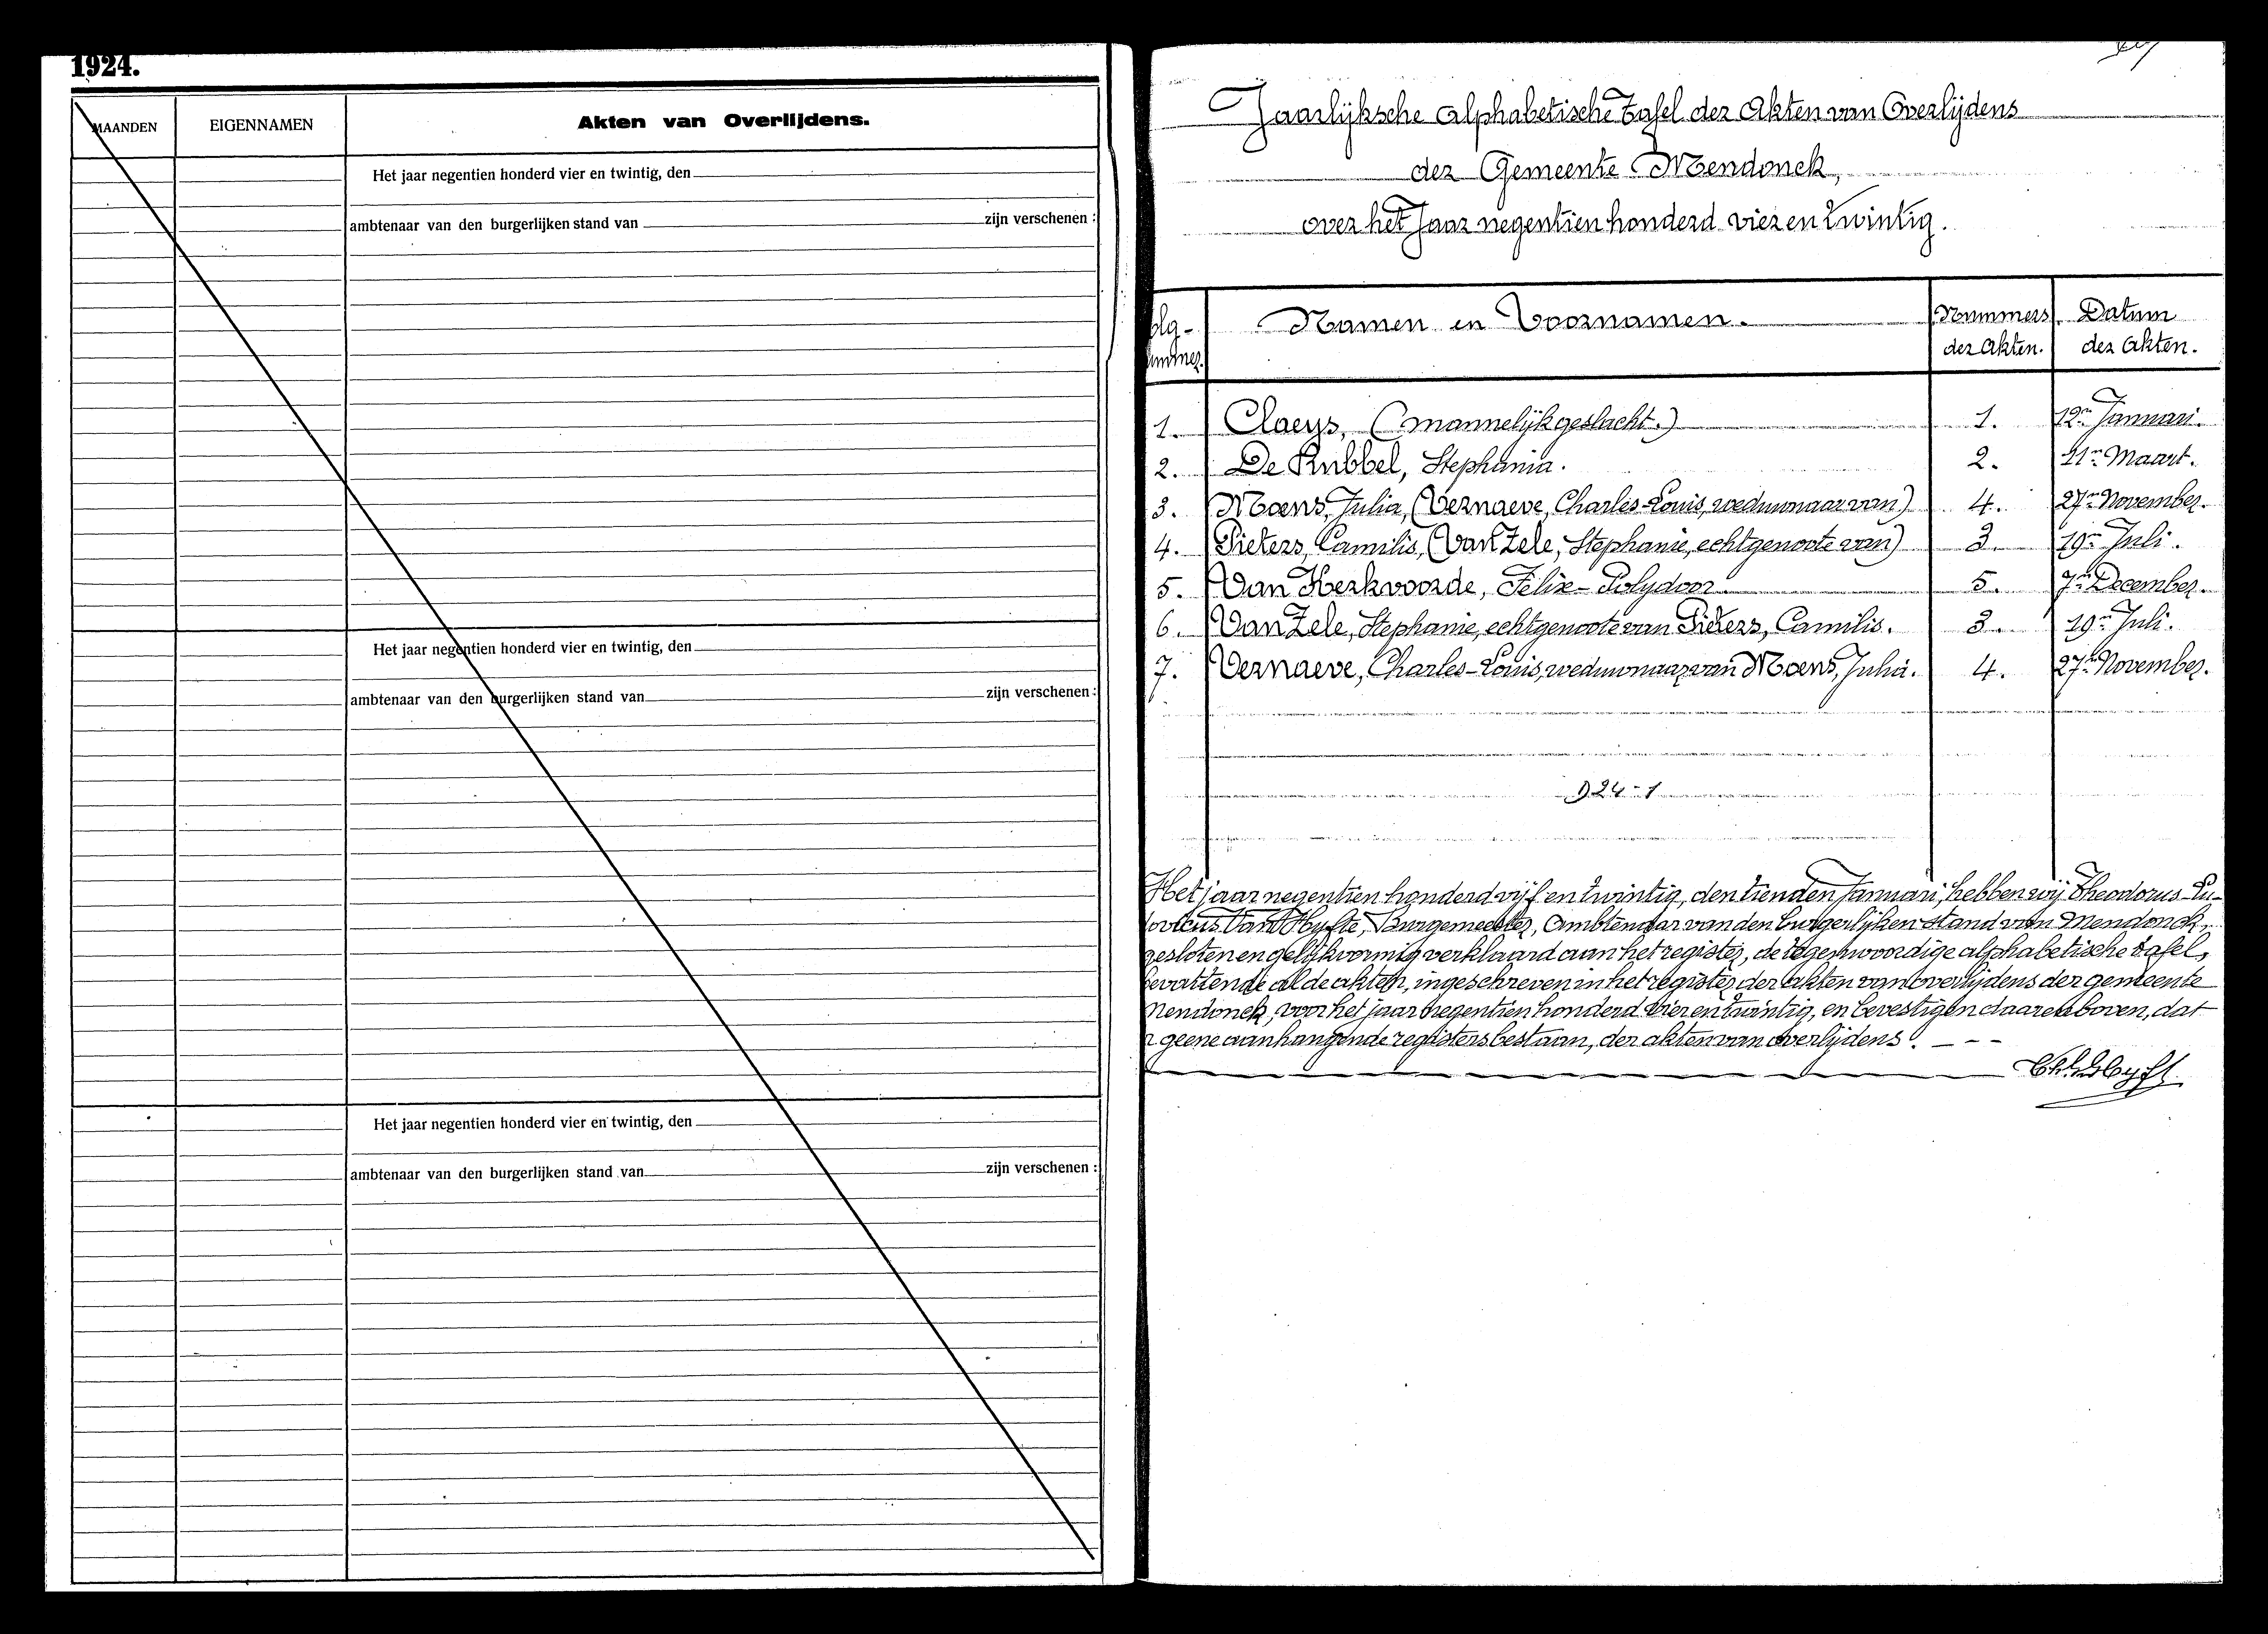 1924.
MAANDEN
EIGENNAMEN
Akten van Overlijdens.
Het jaar negentien honderd vier en twintig, den
ambtenaar van den burgerlijken stand van zijn verschenen :
Het jaar negentien honderd vier en twintig, den
ambtenaar van den burgerlijken stand van zijn verschenen :
Het jaar negentien honderd vier en twintig, den
ambtenaar van den burgerlijken stand van zijn verschenen :
Jaarlijksche alphabetische tafel der Akten van Overlijdens
der Gemeente Mendonck,
over het Jaar negentien honderd vier en twintig.
Namen en Voornamen. Nummers der Akten. Datum der Akten.
1. Claeys, (mannelijk geslacht.) 1. 12en Januari.
2. De Rubbel, Stephania. 2. 21en Maart.
3. Moens, Julia, (Vernaeve, Charles-Louis, weduwnaar van) 4. 27en November.
4. Pieters, Camilis, (Van Zele, Stephanie, echtgenoote van) 3. 19en Juli.
5. Van Kerkvoorde, Felix-Polydoor. 5. 7en December.
6. Van Zele, Stephanie, echtgenoote van Pieters, Camilis. 3. 19en Juli.
7. Vernaeve, Charles-Louis, weduwnaar van Moens, Julia. 4. 27en November.
924-1
Het jaar negentien honderd vijf en twintig, den tienden Januari, hebben wij Theodorus Lu-
dovicus Van Hyfte, Burgemeester, Ambtenaar van den burgerlijken stand van Mendonck,
gesloten en gelijkvormig verklaard aan het register, de tegenwoordige alphabetische tafel,
bevattende al de akten, ingeschreven in het register der akten van overlijdens der gemeente
Mendonck, voor het jaar negentien honderd vier en twintig, en bevestigen daarenboven, dat
er geene aanhangende registers bestaan, der akten van overlijdens.